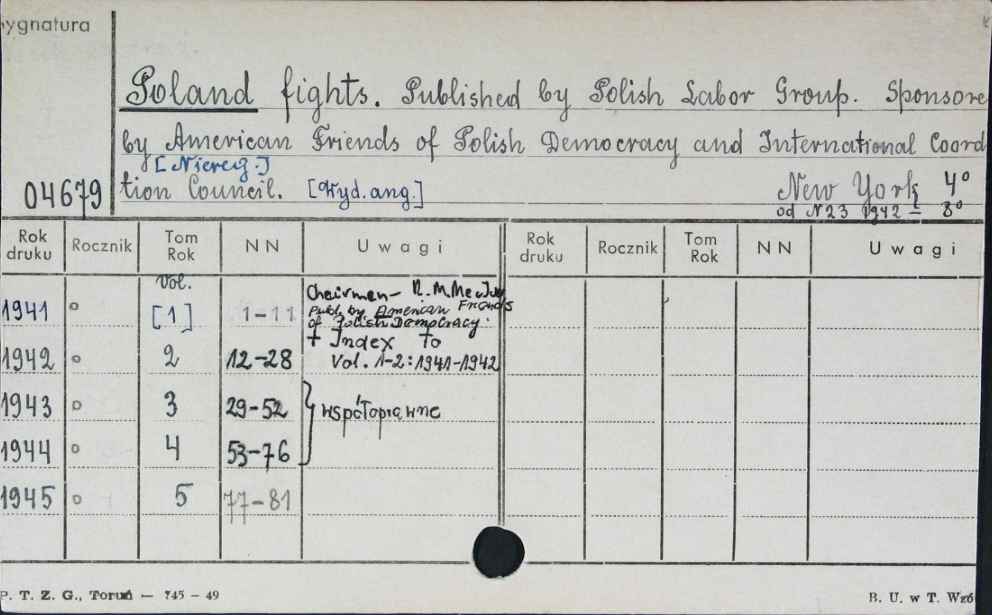 ygnatura
Poland fights. Published by Polish Labor Group. Sponsore
by American Friends of Polish Democracy and International Coord
[Niereg.]
04679 tion Council. [Wyd. ang.] New York 4°
od N 23 1942 = 8°
Rok druku Rocznik Tom Rok NN Uwagi Rok druku Rocznik Tom Rok NN Uwagi
Vol.
1941 o [1] 1-11 Chairman - R.M.
Publ. by American Friends
of Polish Democracy.
+ Index to
1942 o 2 12-28 Vol. 1-2: 1941-1942
1943 o 3 29-52 współoprawne
1944 o 4 53-76
1945 o 5 77-81
P. T. Z. G., Toruń — 745 - 49 B. U. w T. Wzó